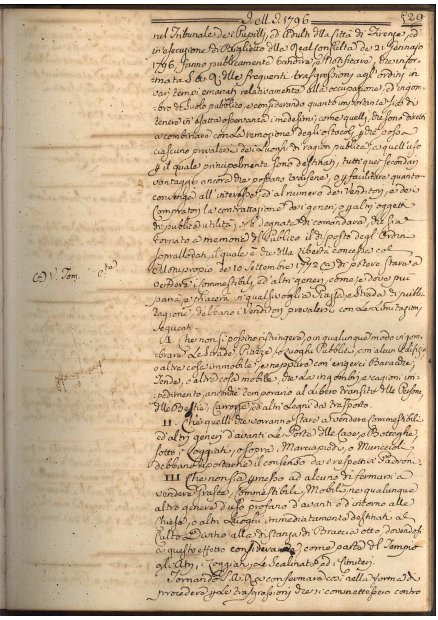 Dell A. 1796 529
nel Tribunale dei Pupilli, ed Adulti della Città di Firenze, ed
in esecuzione di Biglietto della Real Consulta de 21 Gennajo
1796. fanno pubblicamente bandire, e Notificare, che infor-
mata S. A. R. delle frequenti trasgressioni agl'ordini in
varj tempi emanati relativamente alla occupazione, ed ingom-
bro di suolo pubblico, e considerando quanto importante sia di
tenere in esatta osservanza i medesimi, come quelli, che sono diretti
a combinare con la remozione degli ostacoli, che possa
ciascuno prevalersi dei Luoghi di ragion pubblica, a quell'uso
per il quale principalmente sono destinati, tutti quei secondarj
vantaggi ancora che possano trarsene, e per facilitare quanto
convenga all'interesse, ed al numero dei Venditori, e dei
Compratori la contrattazione dei generi, e per altri oggetti
di pubblica utilità, si è degnata di comandare, che sia
tornato a memoria del Pubblico il disposto degl'Ordini
sopra lodati, il quale è che della libertà concessa col
Motuproprio de 10 Settembre 1772 di potere stare a
vendere Commestibili, ed altri generi, come, e dove più
parrà, e piacerà in qualsivoglia Piazza, e strada di pubbli-
ca ragione, debbano i Venditori prevalersi con le limitazioni
seguenti.
(a) V. Tom.
I Che non si possino ristringere, o in qualunque modo ingom-
brare le Strade, Piazze, e Luoghi Pubblici con alcun Edifizio
o altra cosa immobile, e neppure con erigervi Baracche,
Tende, o altra cosa mobile, che le ingombri, e cagioni im-
pedimento, ancorche temporario al libero transito delle Persone,
delle Bestie, Carrozze, ed altri Legni da trasporto.
II Che quelli che vorranno stare a vendere Commestibili
ed altri generi davanti le Porte delle Case, e Botteghe,
sotto i Loggiati, o sopra i Marciapiedi, o Muricciuoli
debbano riportarne il consenso da i respettivi Padroni.
III Che non sia permesso ad alcuno di fermarsi a
vendere Frutte, Commestibili, Mobili, ne qualunque
altro genere d'uso profano davanti o d'intorno alle
Chiese, o altri Luoghi immediatamente destinati al
Culto Divino alla distanza di Braccia otto dovendosi
a quest'effetto considerare, come parte del Tempio
gl'Atrj, i Loggiati, le Scalinate, ed i Cimiterj.
Tornando S. A. R. a confermare così nella forma di
procedere per le trasgressioni che si commettessero contro